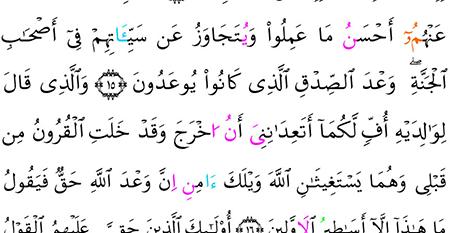 عَنْهُمُۥٓ أَحْسَنُ مَا عَمِلُوا۟ وَيُتَجَاوَزُ عَن سَيِّـَٔاتِهِمْ فِىٓ أَصْحَٰبِ
ٱلْجَنَّةِۖ وَعْدَ ٱلصِّدْقِ ٱلَّذِى كَانُوا۟ يُوعَدُونَ ١٥ وَٱلَّذِى قَالَ
لِوَٰلِدَيْهِ أُفٍّ لَّكُمَا أَتَعِدَٰنِنِىَ أَنُ ا۟خْرَجَ وَقَدْ خَلَتِ ٱلْقُرُونُ مِن
قَبْلِى وَهُمَا يَسْتَغِيثَٰنِ ٱللَّهَ وَيْلَكَ ءَامِنِ اِنَّ وَعْدَ ٱللَّهِ حَقٌّ فَيَقُولُ
مَا هَٰذَآ إِلَّآ أَسَٰطِيرُ ٱلَاوَّلِينَ ١٦ أُو۟لَٰٓئِكَ ٱلَّذِينَ حَقَّ عَلَيْهِمُ ٱلْقَوْلُ